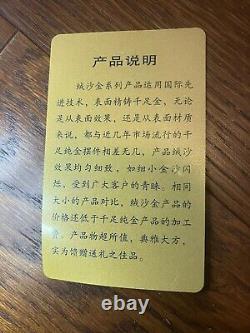 产品说明
绒沙金系列产品运用国际先
进技术，表面精铸千足金，无论
是从表面效果，还是从表面材质
来说，都与近几年市场流行的千
足纯金摆件相差无几，产品绒沙
效果均匀细致，如细小金沙闪
烁，受到广大客户的青睐。相同
大小的产品对比，绒沙金产品的
价格还低于千足纯金产品的加工
费。产品物超所值，典雅大方，
实为馈赠送礼之佳品。